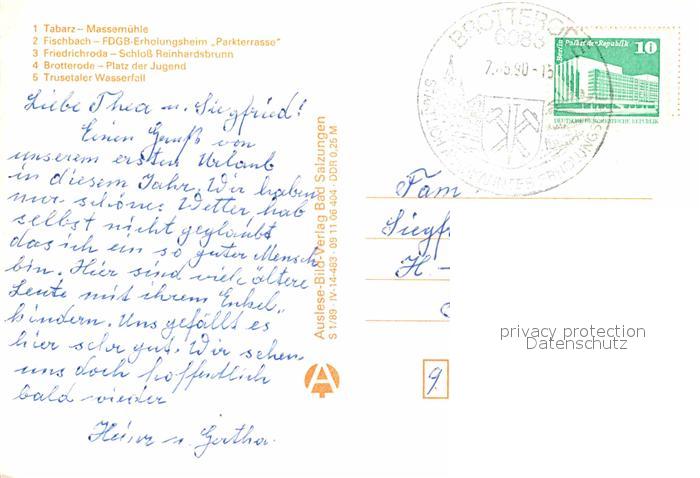 1 Tabarz – Massemühle
2 Fischbach – FDGB-Erholungsheim „Parkterrasse“
3 Friedrichroda – Schloß Reinhardsbrunn
4 Brotterode – Platz der Jugend
5 Trusetaler Wasserfall
Liebe Thea u. Siegfried!
Einen Gruß von
unserem ersten Urlaub
in diesem Jahr. Wir haben
nur schönes Wetter, hab
selbst nicht geglaubt
das ich ein so guter Mensch
bin. Hier sind viele ältere
Leute mit ihrem Enkel„
kindern. Uns gefällt es
hier sehr gut. Wir sehen
uns doch hoffentlich
bald wieder
Heinz u. Gertha.
Auslese-Bild-Verlag Bad Salzungen
S 1/89 · IV-14-483 · 09 11 06 404 · DDR 0,25 M
BROTTERODE
6086
90-15
Berlin Palast der Republik
10
DEUTSCHE DEMOKRATISCHE REPUBLIK
Fam
Siegf
H.
9.
privacy protection
Datenschutz